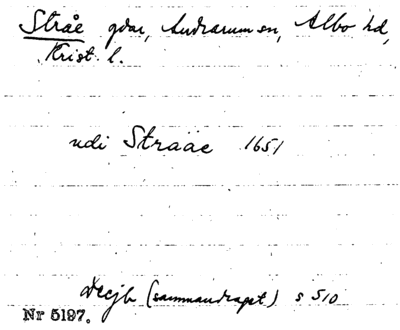 Stråe gdar, Andrarum sn, Albo hd,
Krist. l.
udi Straae 1651
Decjb (sammandraget) s 510
Nr 5197.